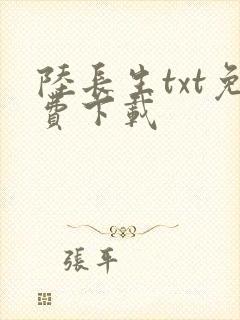 陸長生txt免
費下載
張平